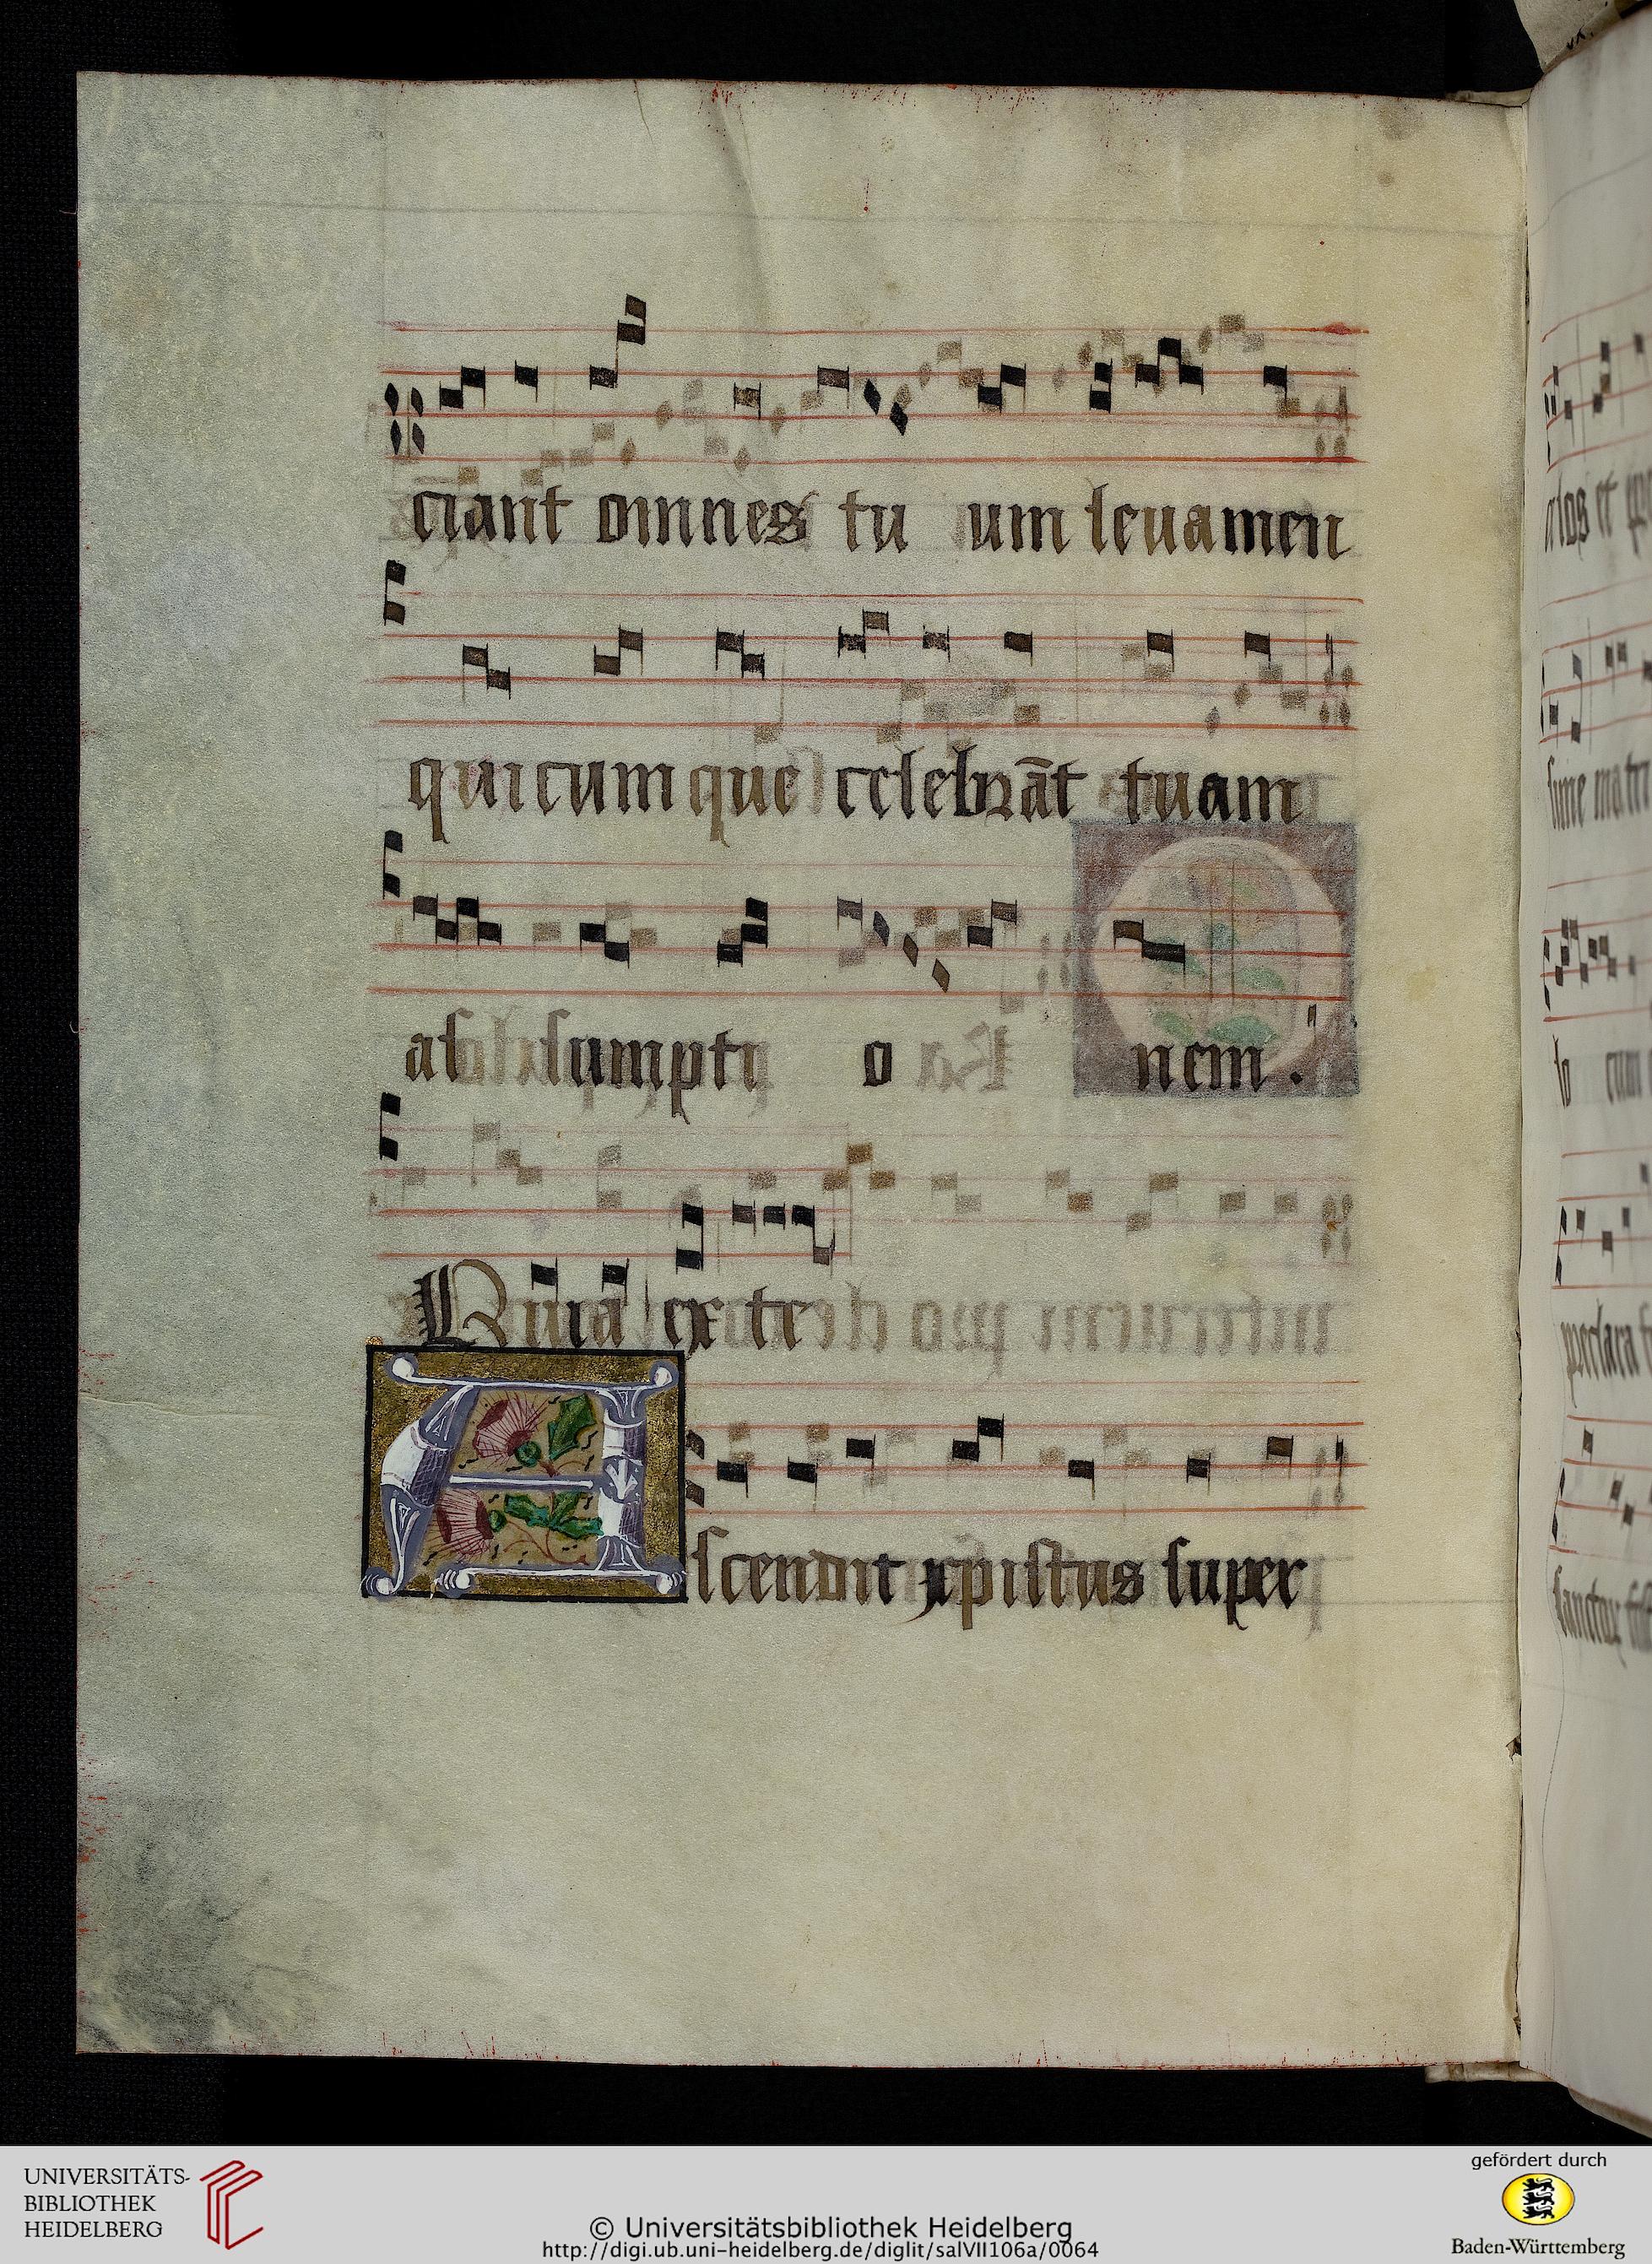 ciant omnes tu um leuamen
quicumque celebrāt tuam
assumpti o nem.
Quia ex te
Ascendit xpistus super
UNIVERSITÄTS-
BIBLIOTHEK
HEIDELBERG
© Universitätsbibliothek Heidelberg
http://digi.ub.uni-heidelberg.de/diglit/salVII106a/0064
gefördert durch
Baden-Württemberg